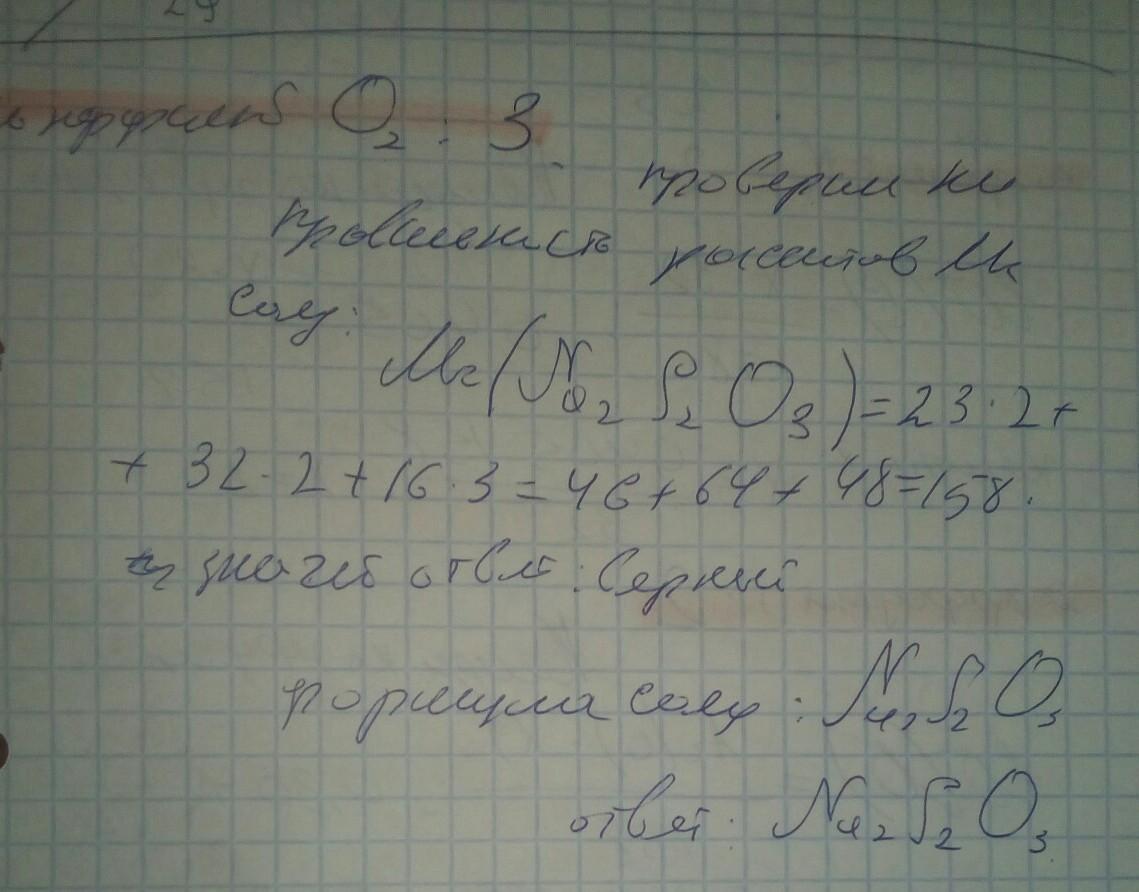 29
коффицент O₂ : 3.
проверим на
правильность расчетов Mr
соли:
Mr(Na₂S₂O₃)=23·2+
+ 32·2+16·3=46+64+48=158.
значет ответ: верный
формула соли: Na₂S₂O₃
ответ: Na₂S₂O₃